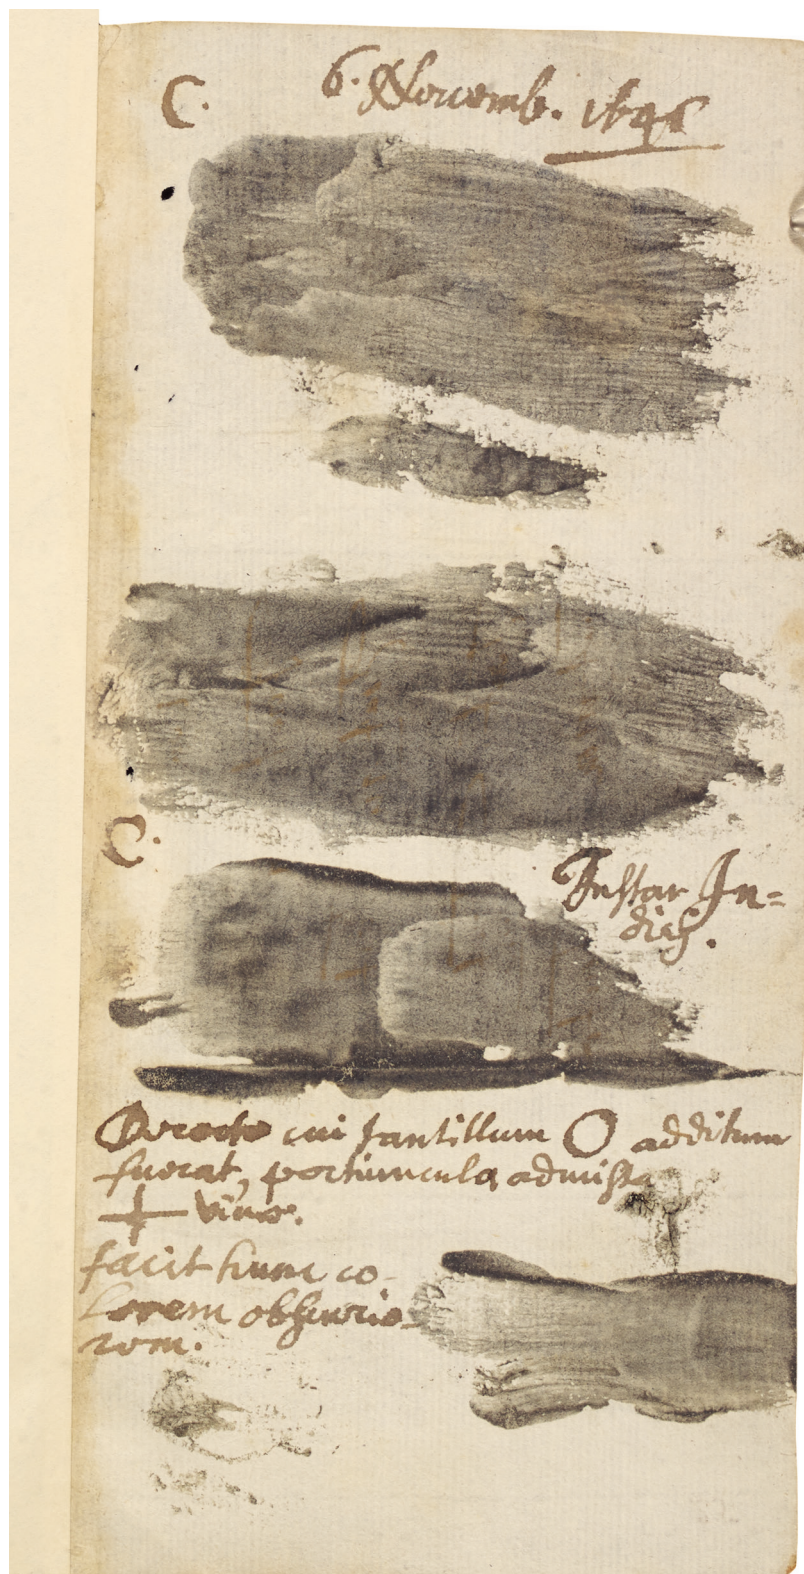 C. 6. Novemb. 1646
C.
Instar In=
dich.
cui tantillum O additum
fuerat, portiuncula admista
vini.
facit hunc co-
lorem obscurio-
rem.